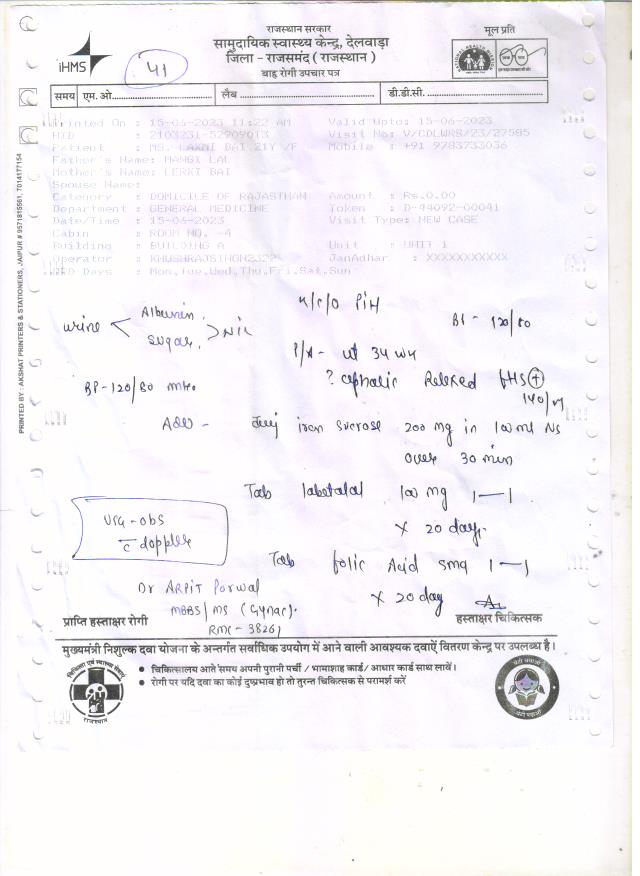 राजस्थान सरकार
मूल प्रति
सामुदायिक स्वास्थ्य केन्द्र, देलवाड़ा
जिला - राजसमंद ( राजस्थान )
बाह्य रोगी उपचार पत्र
iHMS
41
समय एम. ओ. लैब डी.डी.सी.
Printed On : 15-06-2023 11:22 AM Valid Upto: 15-06-2023
HID : 2103231-52909013 Visit No: V/CDLWRS/23/27585
Patient : MS. LAXMI BAI 21Y /F Mobile : +91 9783733036
Father's Name: MANGI LAL
Mother's Name: LERKI BAI
Spouse Name:
Category : DOMICILE OF RAJASTHAN Amount : Rs.0.00
Department : GENERAL MEDICINE Token : D-44092-00041
Date/Time : 15-06-2023 Visit Type: NEW CASE
Cabin : ROOM NO. -4
Building : BUILDING A Unit : UNIT 1
Operator : KHUSHRAJSINGH2322 JanAadhar : XXXXXXXXXXX
OPD Days : Mon,Tue,Wed,Thu,Fri,Sat,Sun
PRINTED BY : AKSHAT PRINTERS & STATIONERS, JAIPUR # 9571815561, 7014177154
K/C/O PIH
urine Albumin Sugar Nil
BP - 120/80
P/A - ut 34 wk
? cephalic Relaxed FHS +
140/m
BP - 120/80 mmHg
Adv - Inj iron sucrose 200 mg in 100 ml NS
over 30 min
Tab labetalol 100 mg 1—1
x 20 days
USG - obs
c doppler
Tab folic Acid 5mg 1—1
x 20 day
Dr ARPIT Porwal
MBBS/MS (Gynac).
RMC - 38261
प्राप्ति हस्ताक्षर रोगी हस्ताक्षर चिकित्सक
मुख्यमंत्री निशुल्क दवा योजना के अन्तर्गत सर्वाधिक उपयोग में आने वाली आवश्यक दवाऐं वितरण केन्द्र पर उपलब्ध है।
• चिकित्सालय आते समय अपनी पुरानी पर्ची / भामाशाह कार्ड / आधार कार्ड साथ लावें।
• रोगी पर यदि दवा का कोई दुष्प्रभाव हो तो तुरन्त चिकित्सक से परामर्श करें
राजस्थान